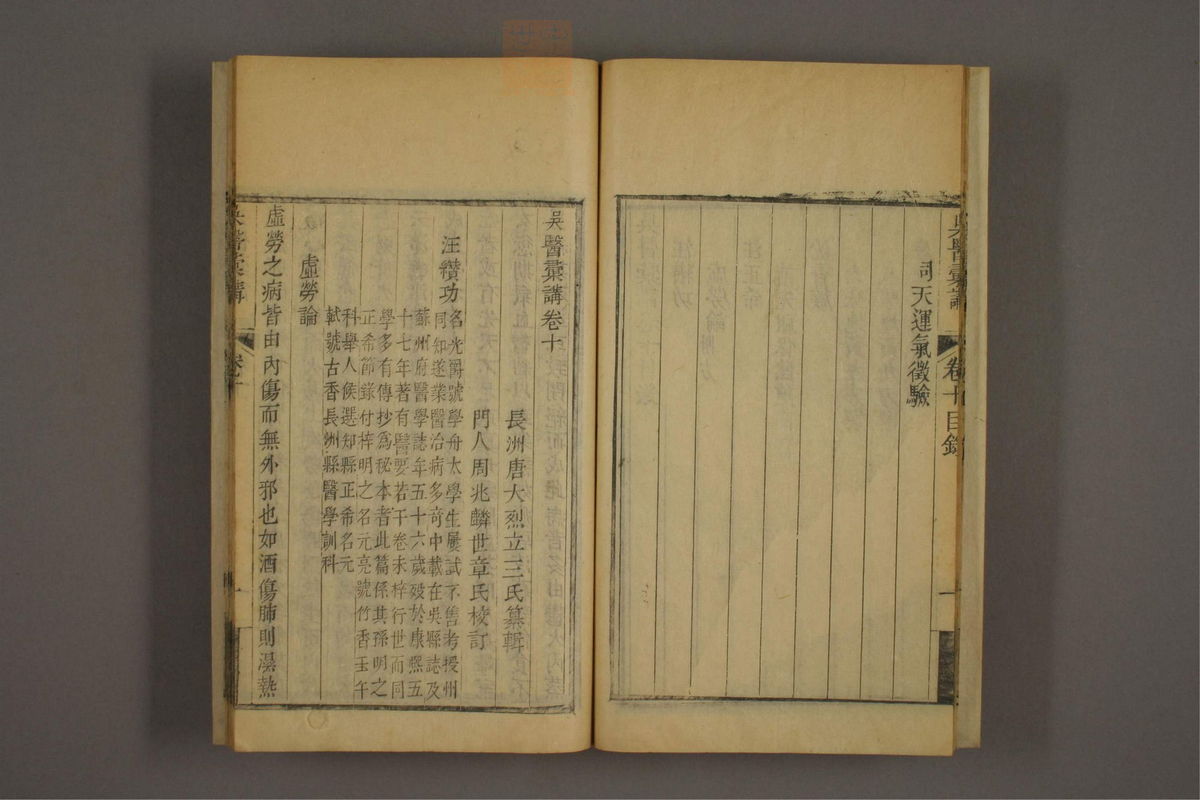 吳醫彙講 卷十目錄 一
司天運氣徵驗
吳醫彙講卷十
長洲唐大烈立三氏纂輯
門人周兆麟世章氏校訂
汪纘功
名光爵號學舟太學生屢試不售考授州
同知遂業醫治病多奇中載在吳縣誌及
蘇州府醫學誌年五十六歲歿於康熙五
十七年著有醫要若干卷未梓行世而同
學多有傳抄爲秘本者此篇係其孫明之
正希節錄付梓明之名元亮號竹香壬午
科舉人候選知縣正希名元
軾號古香長洲縣醫學訓科
虛勞論
虛勞之病皆由內傷而無外邪也如酒傷肺則濕熱
吳醫彙講 卷十 一